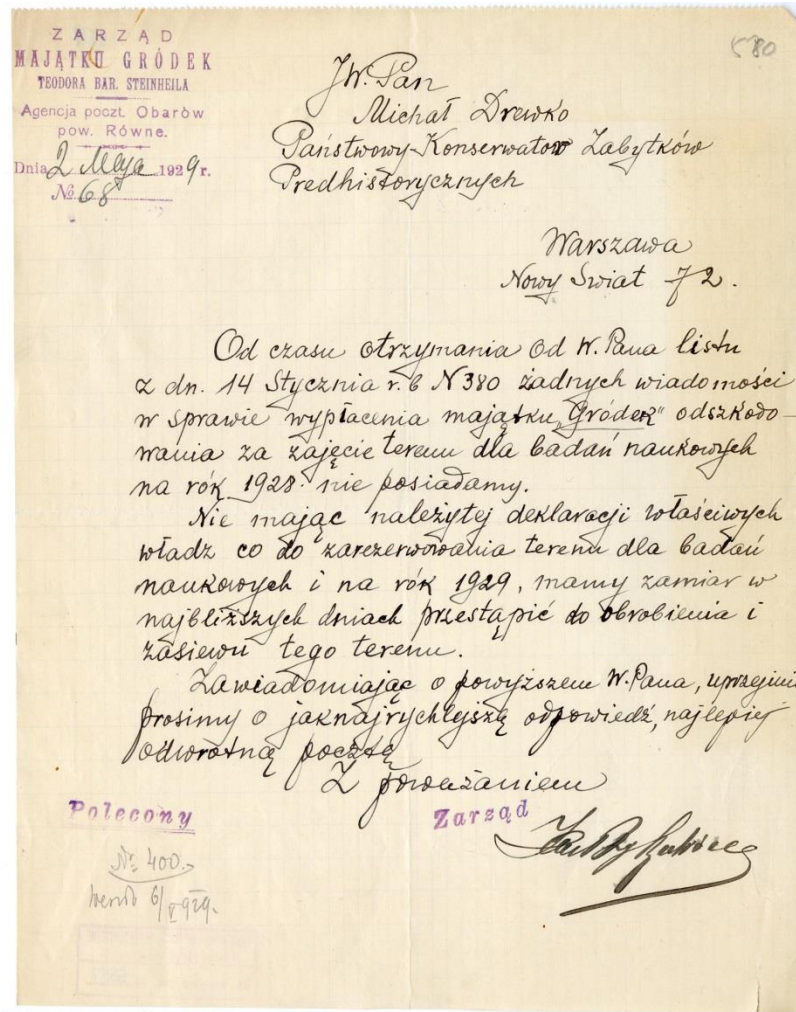 ZARZĄD
MAJĄTKU GRÓDEK
TEODORA BAR. STEINHEILA
Agencja poczt. Obarów
pow. Równe.
Dnia 2 Maja 1929 r.
№ 68
580
JW. Pan
Michał Drewko
Państwowy-Konserwator Zabytków
Predhistorycznych
Warszawa
Nowy Swiat 72.
Od czasu otrzymania od W. Pana listu
z dn. 14 Stycznia r. b N 380 żadnych wiadomości
w sprawie wypłacenia majątku „Gródek" odszkodo-
wania za zajęcie terenu dla badań naukowych
na rok 1928. nie posiadamy.
Nie mając należytej deklaracji właściwych
władz co do zarezerwowania terenu dla badań
naukowych i na rok 1929, mamy zamiar w
najbliższych dniach przestąpić do obrobienia i
zasiewu tego terenu.
Zawiadomiając o powyższem W. Pana, uprzejmie
prosimy o jaknajrychlejszą odpowiedź, najlepiej
odwrotną pocztą
Z poważaniem
Polecony
Zarząd
№ 400.-
6/V 929.